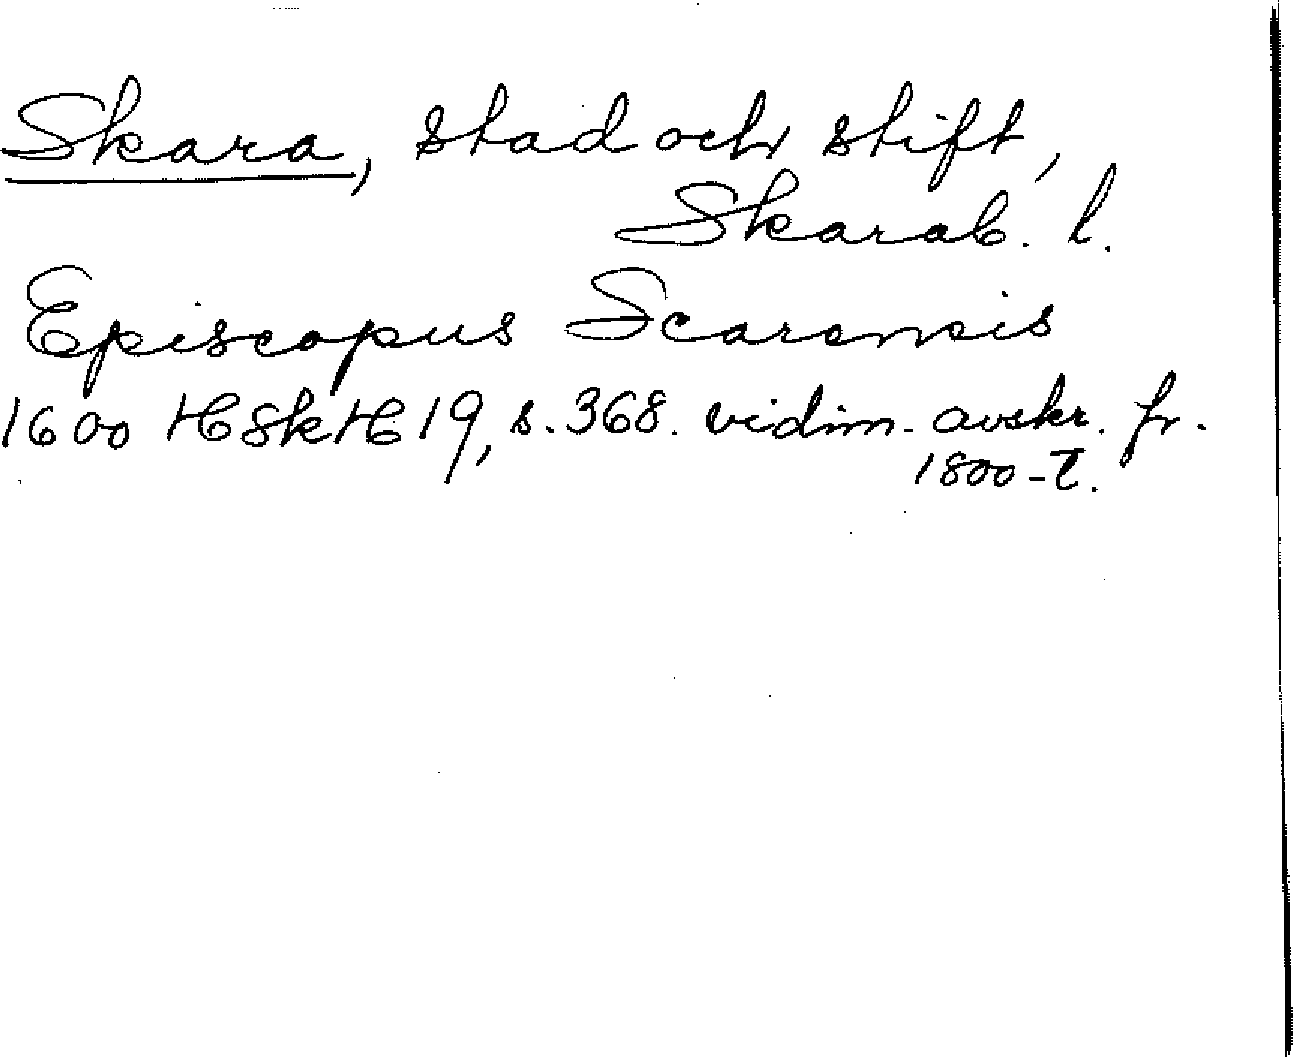 Skara, stad och stift,
Skarab. l.
Episcopus Scarensis
1600 HSkH 19, s. 368. vidim. avskr. fr.
1800-t.